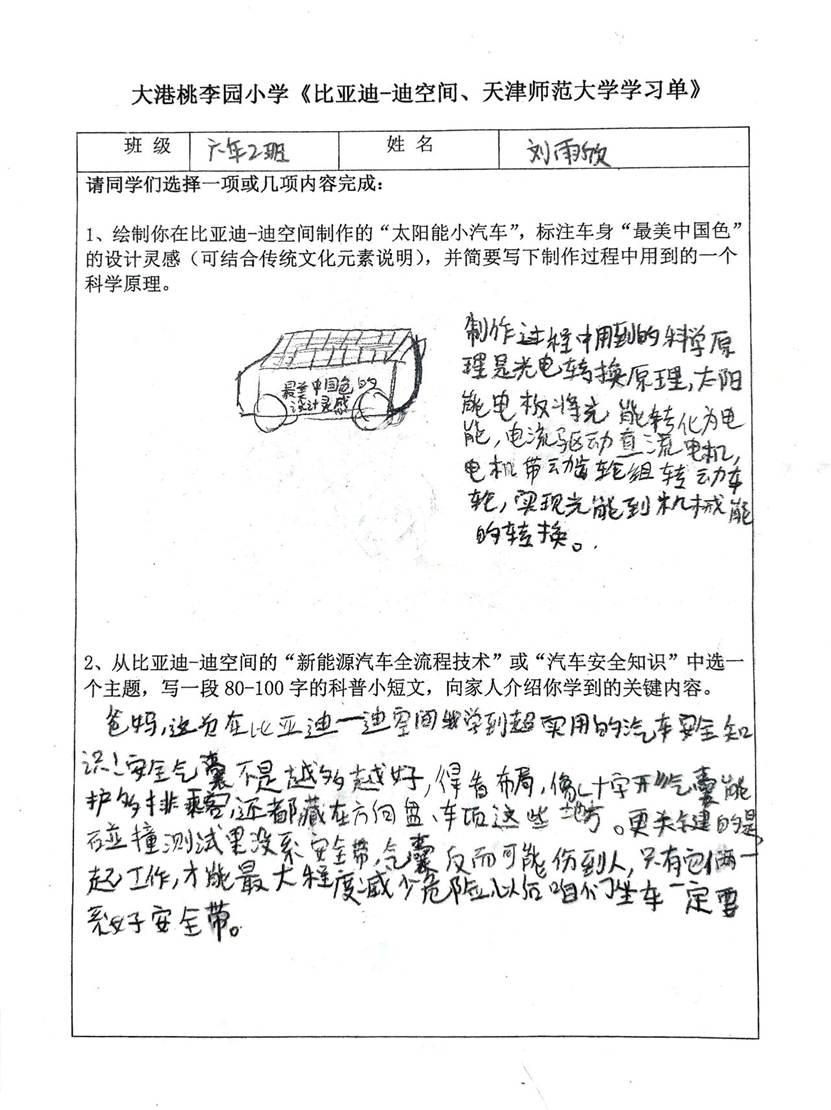 大港桃李园小学《比亚迪-迪空间、天津师范大学学习单》
班 级 六年2班 姓 名 刘雨欣
请同学们选择一项或几项内容完成：
1、绘制你在比亚迪-迪空间制作的“太阳能小汽车”，标注车身“最美中国色”
的设计灵感（可结合传统文化元素说明），并简要写下制作过程中用到的一个
科学原理。
最美中国色的
设计灵感
制作过程中用到的科学原
理是光电转换原理，太阳
能电板将光能转化为电
能，电流驱动直流电机，
电机带动齿轮组转动车
轮，实现光能到机械能
的转换。
2、从比亚迪-迪空间的“新能源汽车全流程技术”或“汽车安全知识”中选一
个主题，写一段 80-100 字的科普小短文，向家人介绍你学到的关键内容。
爸妈，这次在比亚迪一迪空间我学到超实用的汽车安全知
识！安全气囊不是越多越好，得看布局，像L十字形气囊能
护多排乘客，还都藏在方向盘、车顶这些地方。更关键的是
碰撞测试里没系安全带，气囊反而可能伤到人，只有它俩一
起工作，才能最大程度减少危险以后咱们坐车一定要
系好安全带。